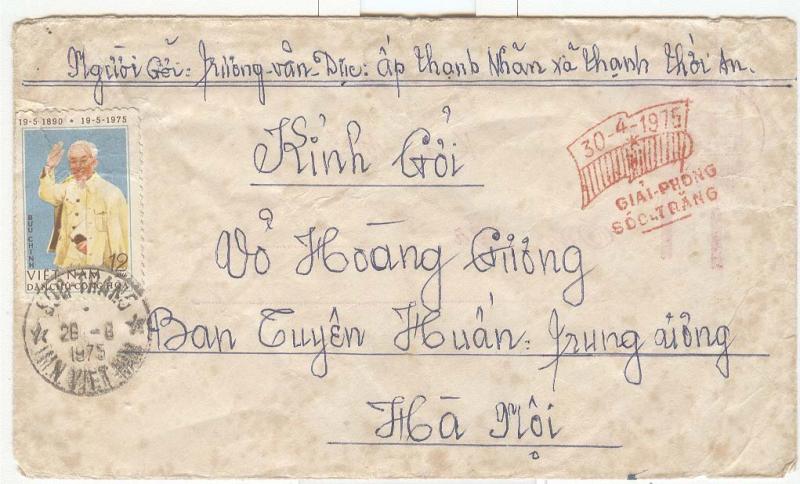 Người Gởi: Trương-văn-Dục: ấp thạnh Nhãn xã thạnh thới An.
19-5-1890 • 19-5-1975
BƯU CHÍNH
12
VIỆT NAM
DÂN CHỦ CỘNG HÒA
30-4-1975
GIẢI-PHÓNG
SÓC-TRĂNG
Kỉnh Gởi
Võ Hoàng Giương
Ban Tuyên Huấn: Trung ương
Hà Nội
SOC TRANG
28 - 8
1975
VIET NAM